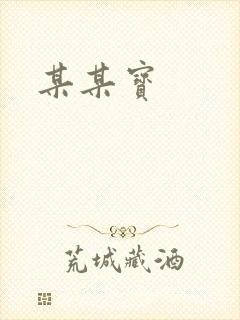 某某宝
荒城藏酒